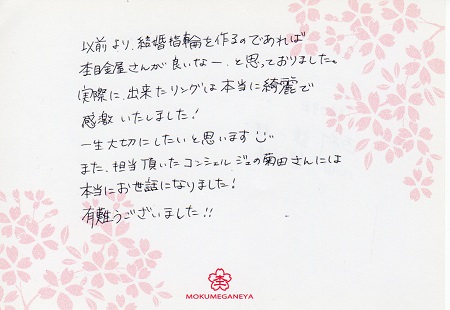 以前より、結婚指輪を作るのであれば
杢目金屋さんが良いなー、と思っておりました。
実際に、出来たリングは本当に綺麗で
感激いたしました!
一生大切にしたいと思います
また、担当頂いたコンシェルジュの菊田さんには
本当にお世話になりました!
有難うございました!!
杢
MOKUMEGANEYA